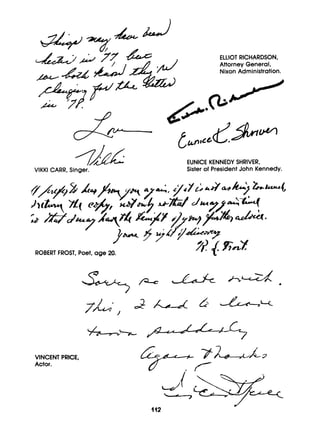 Things may have been
hectic in '77 but
we both know they're
changing for the better
in '78.
Love
Vikki
VIKKI CARR, Singer.
ELLIOT RICHARDSON,
Attorney General,
Nixon Administration.
Elliot Richardson
Eunice K. Shriver
EUNICE KENNEDY SHRIVER,
Sister of President John Kennedy.
I hope to hear from you again, if it is not asking too much,
I return the copy, not only so that I may gain time
so that I may have the benefit of your further advice.
Yours by right of discovery
R. L. Frost.
ROBERT FROST, Poet, age 20.
Sorry so late with
this, I had to leave
town suddenly
Again Thanks
Vincent Price
VINCENT PRICE,
Actor.
112